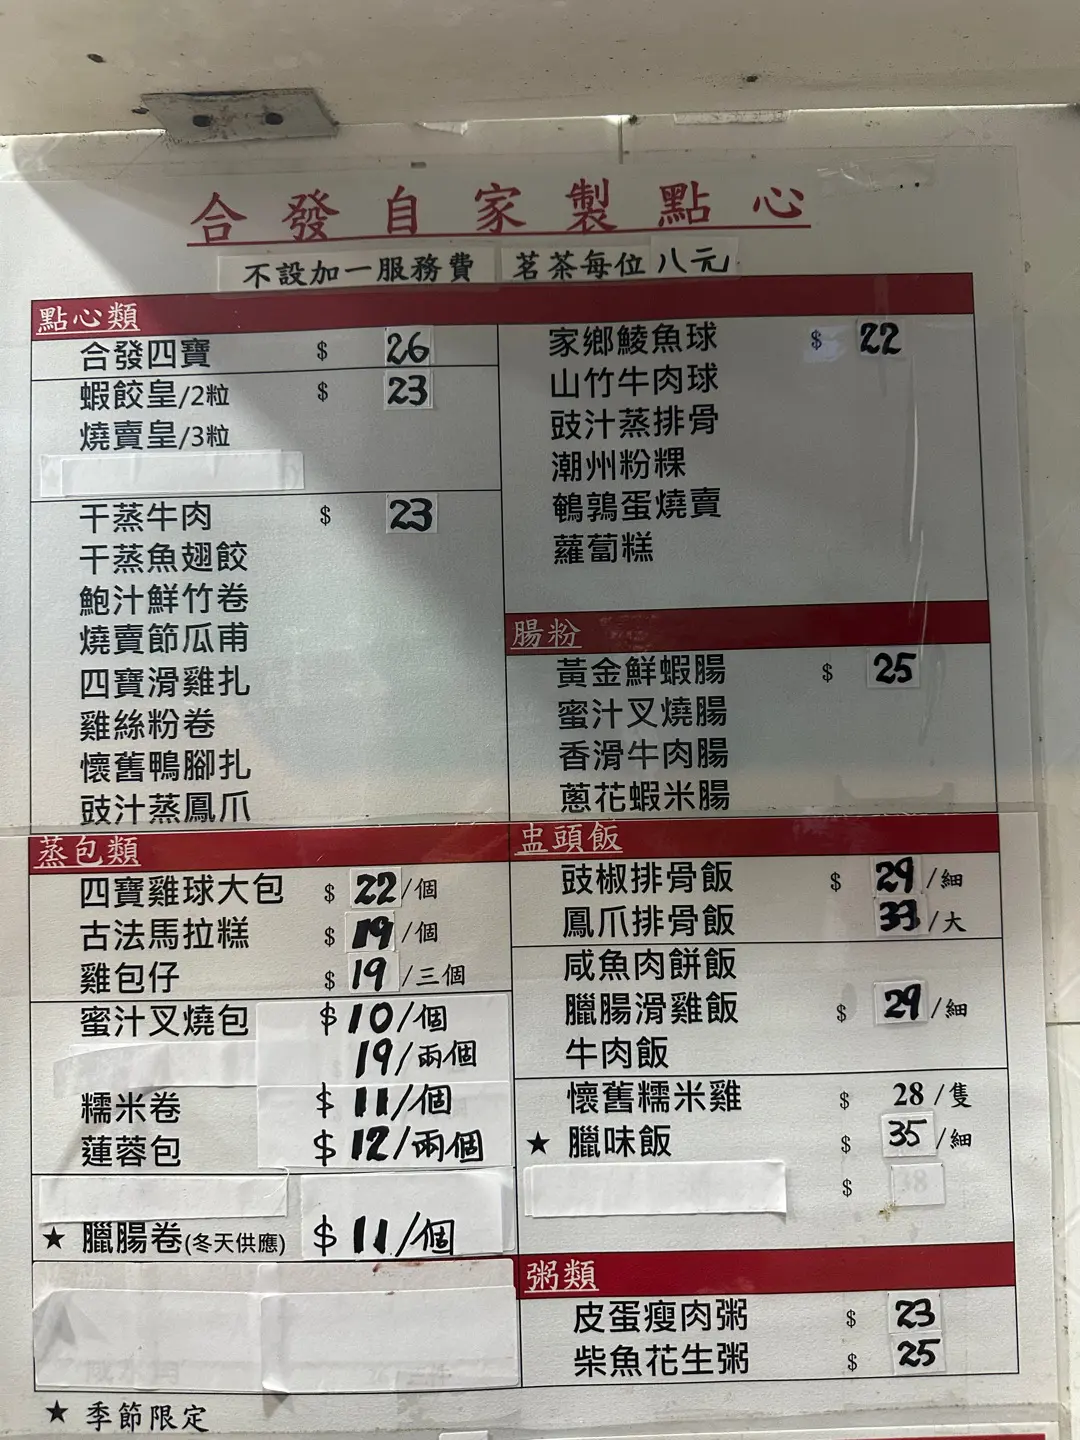 合發自家製點心
不設加一服務費 茗茶每位八元
點心類
合發四寶 $ 26
蝦餃皇/2粒 $ 23
燒賣皇/3粒
干蒸牛肉 $ 23
干蒸魚翅餃
鮑汁鮮竹卷
燒賣節瓜甫
四寶滑雞扎
雞絲粉卷
懷舊鴨腳扎
豉汁蒸鳳爪
家鄉鯪魚球 $ 22
山竹牛肉球
豉汁蒸排骨
潮州粉粿
鵪鶉蛋燒賣
蘿蔔糕
腸粉
黃金鮮蝦腸 $ 25
蜜汁叉燒腸
香滑牛肉腸
蔥花蝦米腸
蒸包類
四寶雞球大包 $ 22/個
古法馬拉糕 $ 19/個
雞包仔 $ 19/三個
蜜汁叉燒包 $10/個
19/兩個
糯米卷 $11/個
蓮蓉包 $12/兩個
★ 臘腸卷(冬天供應) $11/個
盅頭飯
豉椒排骨飯 $ 29/細
鳳爪排骨飯 33/大
咸魚肉餅飯
臘腸滑雞飯 $ 29/細
牛肉飯
懷舊糯米雞 $ 28/隻
★ 臘味飯 $ 35/細
$
粥類
皮蛋瘦肉粥 $ 23
柴魚花生粥 $ 25
★ 季節限定